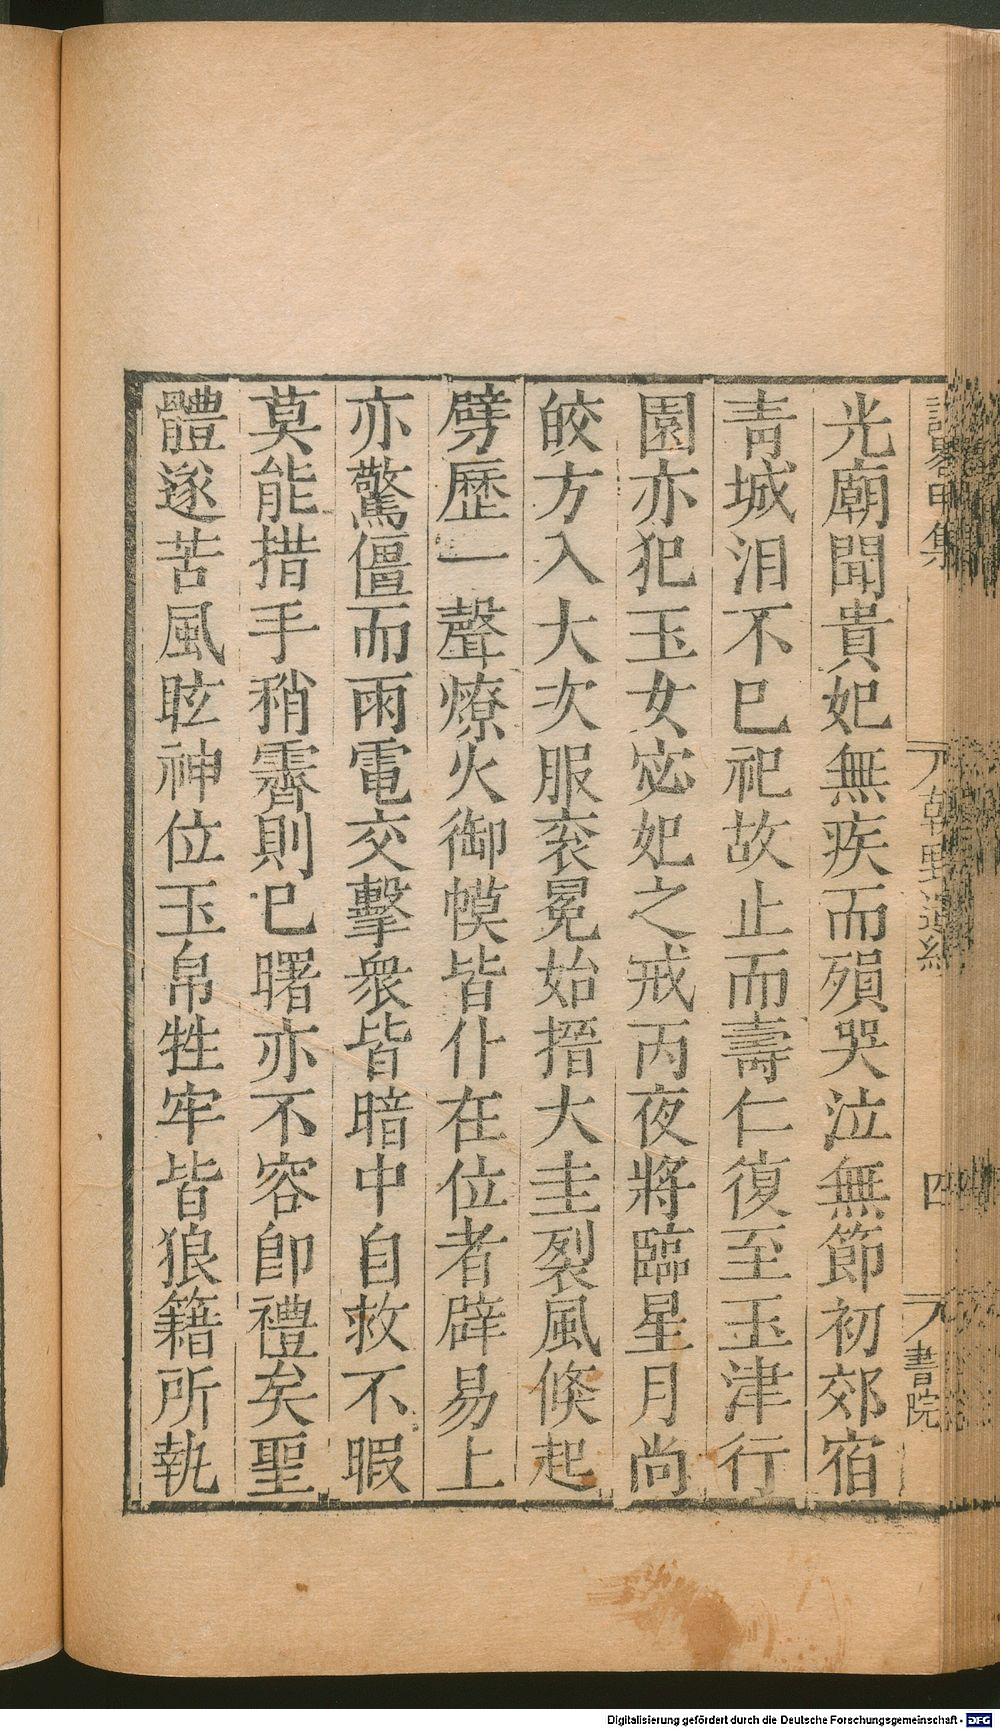 光廟聞貴妃無疾而殞哭泣無節初郊宿
青城泪不巳祀故止而壽仁復至玉津行
園亦犯玉女宓妃之戒丙夜將臨星月尚
皎方入大次服袞冕始搢大圭裂風倐起
劈歷一聲燎火御幙皆仆在位者辟易上
亦驚僵而雨電交擊衆皆暗中自救不暇
莫能措手稍霽則巳曙亦不容卽禮矣聖
體遂苦風眩神位玉帛牲牢皆狼籍所執
甲集
朝野遺
四
書院
Digitalisierung gefördert durch die Deutsche Forschungsgemeinschaft - DFG